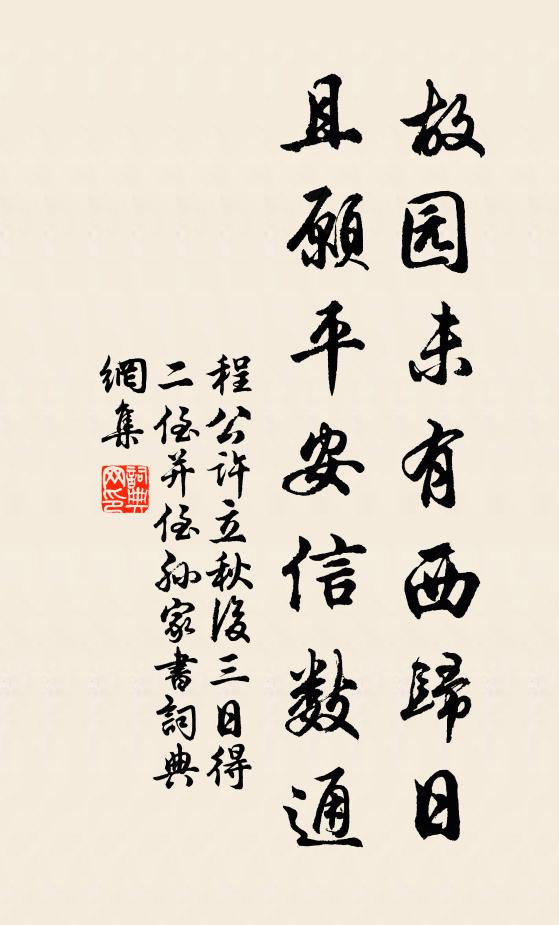 故园未有西歸日
且願平安信数通
程公許立秋後三日得
二侄并侄孫家書詞典
網集
詞典
网印